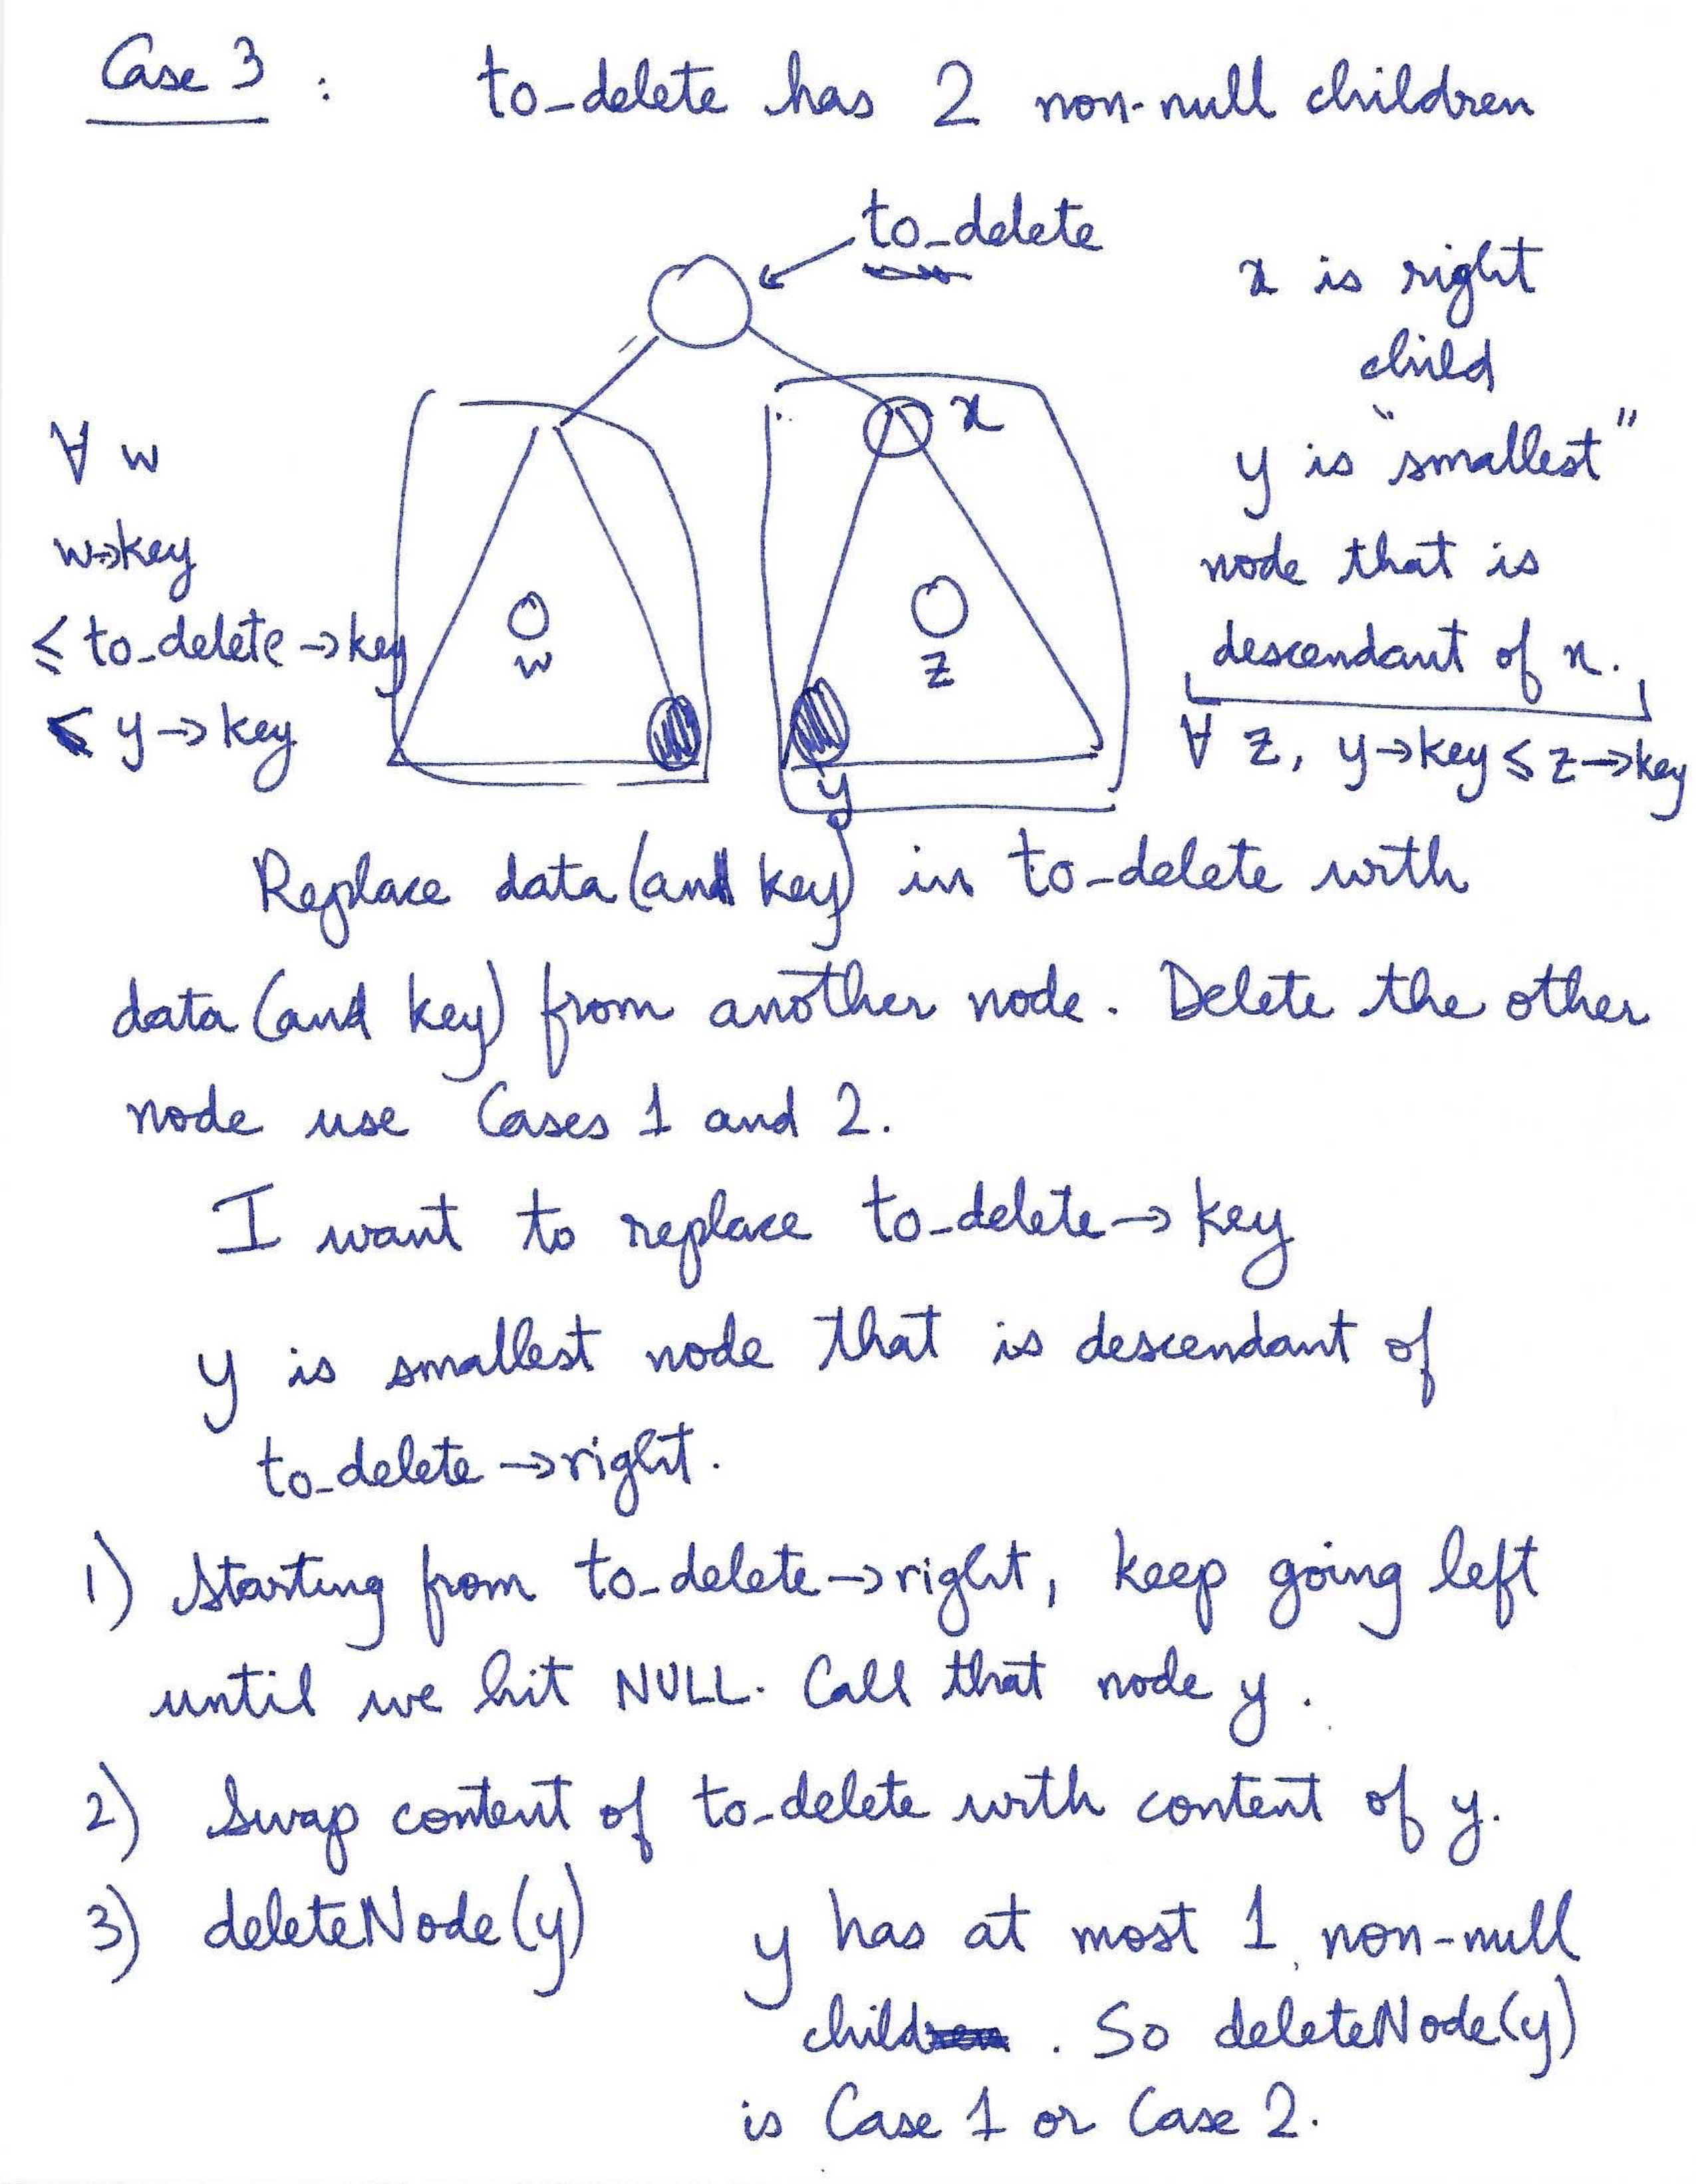 Case 3 : to_delete has 2 non-null children
to_delete
x is right
child
x
y is "smallest"
node that is
descendant of x.
∀ z, y→key ≤ z→key
∀ w
w→key
≤ to_delete →key
≤ y →key
w
z
y
Replace data (and key) in to_delete with
data (and key) from another node. Delete the other
node use Cases 1 and 2.
I want to replace to_delete→ key
y is smallest node that is descendant of
to_delete →right.
1) Starting from to_delete→right, keep going left
until we hit NULL. Call that node y.
2) Swap content of to_delete with content of y.
3) deleteNode(y) y has at most 1 non-null
child. So deleteNode(y)
is Case 1 or Case 2.